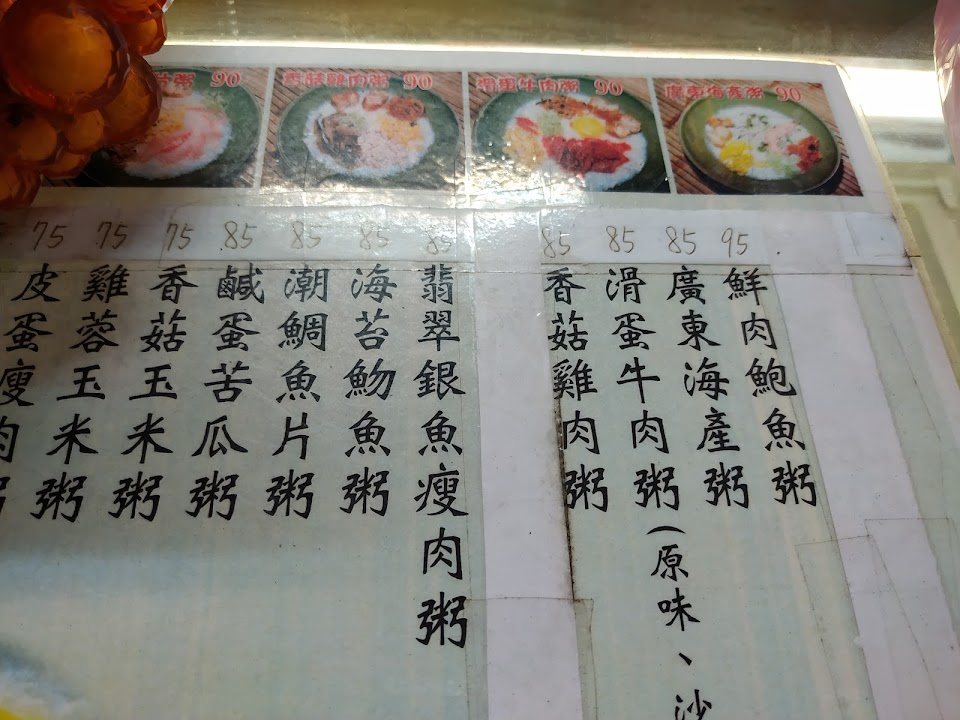 粥 90
香菇雞肉粥 90
滑蛋牛肉粥 90
廣東海產粥 90
95
鮮肉鮑魚粥
85
廣東海產粥
85
滑蛋牛肉粥(原味、沙
85
香菇雞肉粥
85
翡翠銀魚瘦肉粥
85
海苔魩魚粥
85
潮鯛魚片粥
85
鹹蛋苦瓜粥
75
香菇玉米粥
75
雞蓉玉米粥
75
皮蛋瘦肉粥